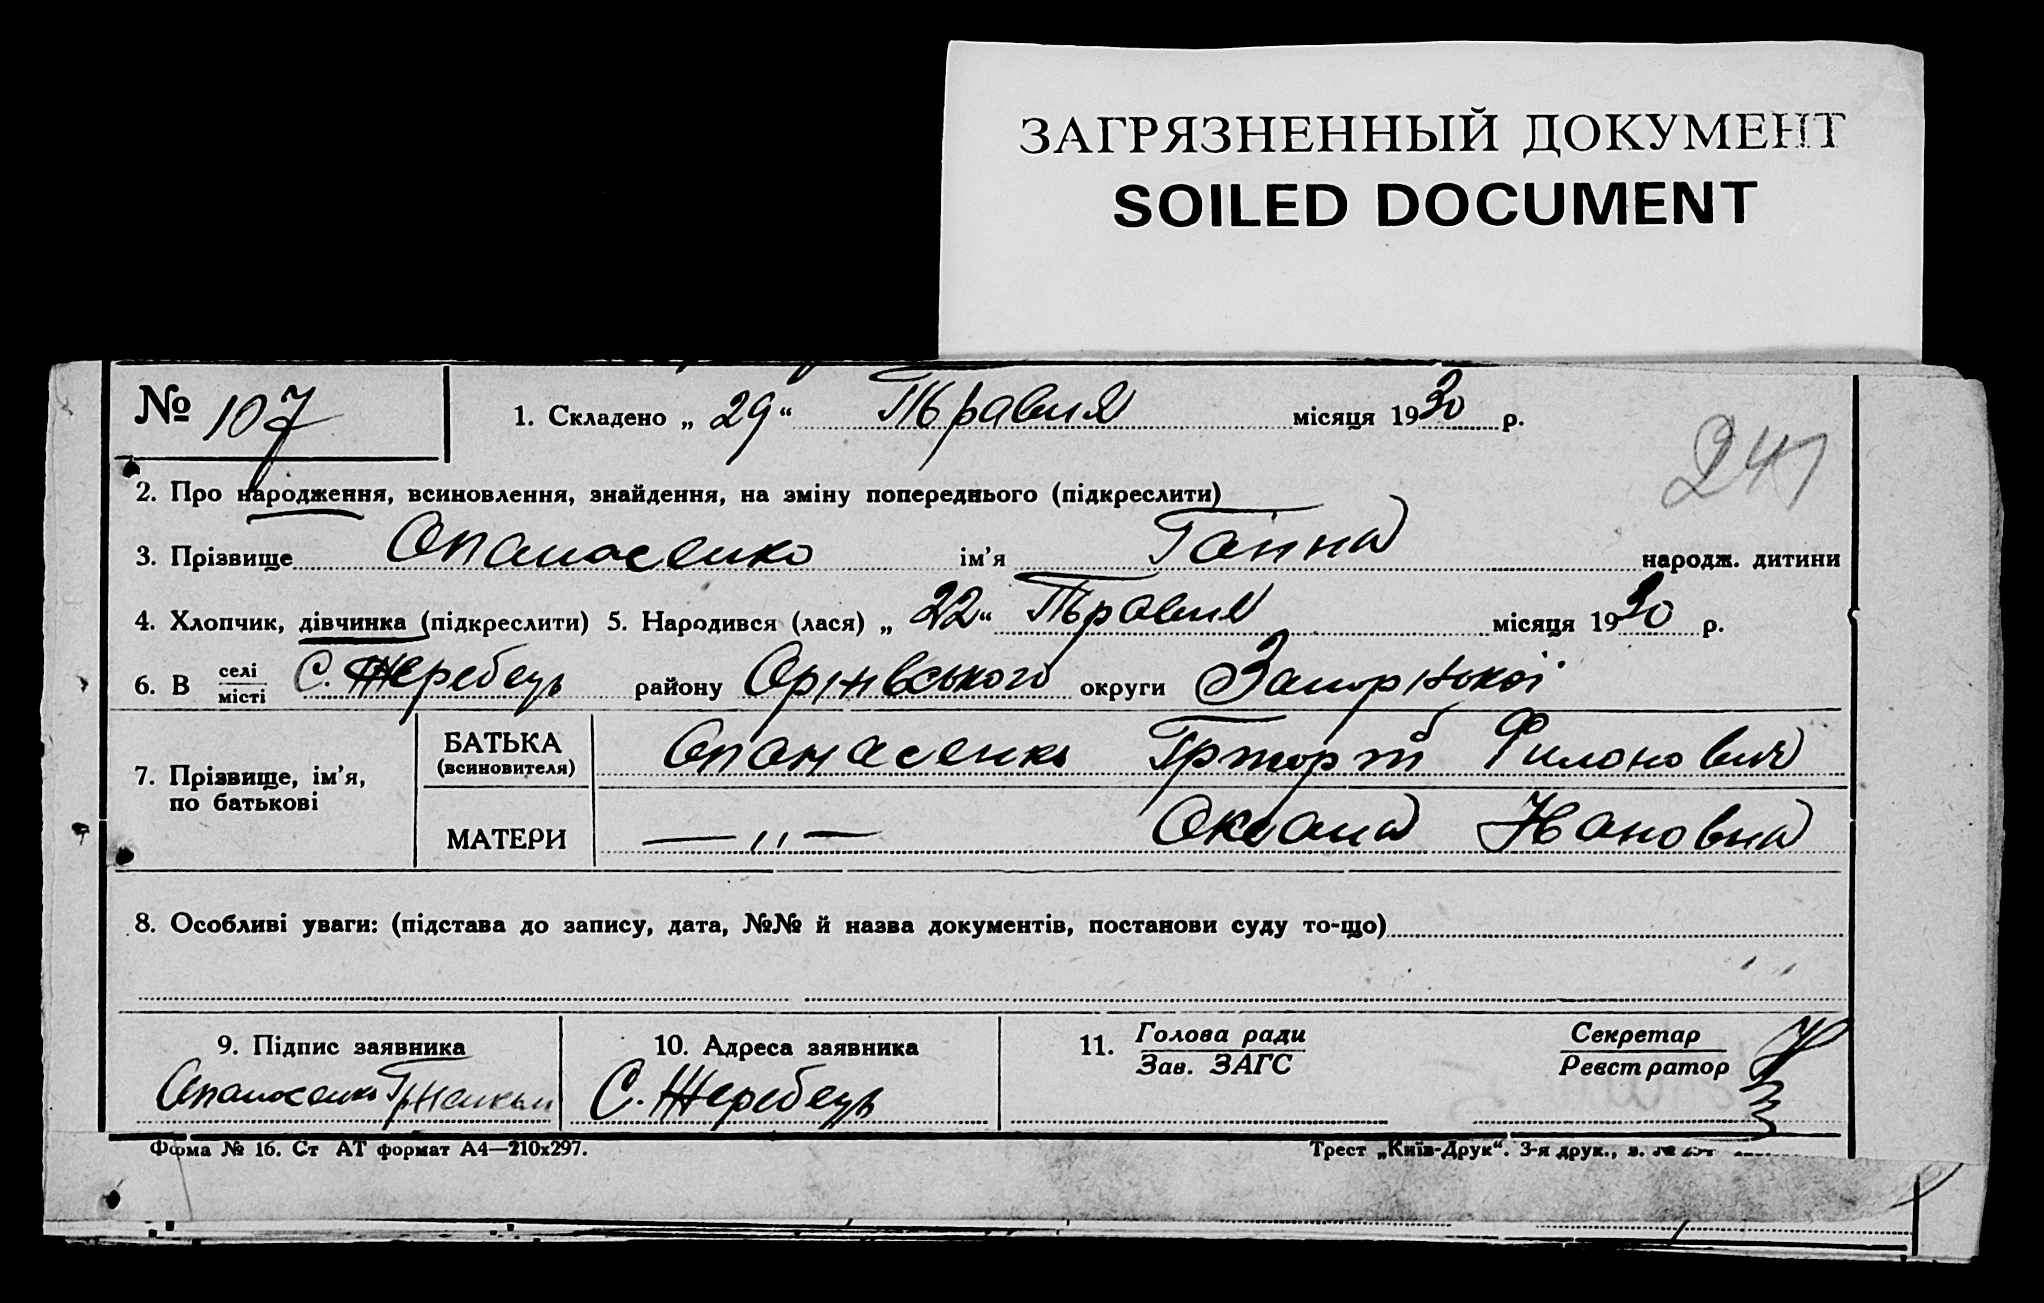 ЗАГРЯЗНЕННЫЙ ДОКУМЕНТ
SOILED DOCUMENT
№ 107
1. Складено „ 29 “ Травня місяця 1930 р.
241
2. Про народження, всиновлення, знайдення, на зміну попереднього (підкреслити)
3. Прізвище Опанасенко ім’я Ганна народж. дитини
4. Хлопчик, дівчинка (підкреслити) 5. Народився (лася) „ 22 “ Травня місяця 1930 р.
6. В селі місті С. Жеребець району Орінвського округи Запоріжської
7. Прізвище, ім’я, по батькові
БАТЬКА (всиновителя) Опанасенко Григорій Филонович
МАТЕРИ — „ — Оксана Ивановна
8. Особливі уваги: (підстава до запису, дата, №№ й назва документів, постанови суду то-що)
9. Підпис заявника
Опанасенко
10. Адреса заявника
С. Жеребець
11. Голова ради
Зав. ЗАГС
Секретар
Реєстратор
Форма № 16. Ст АТ формат А4—210х297.
Трест „Київ-Друк“. 3-я друк., з. №